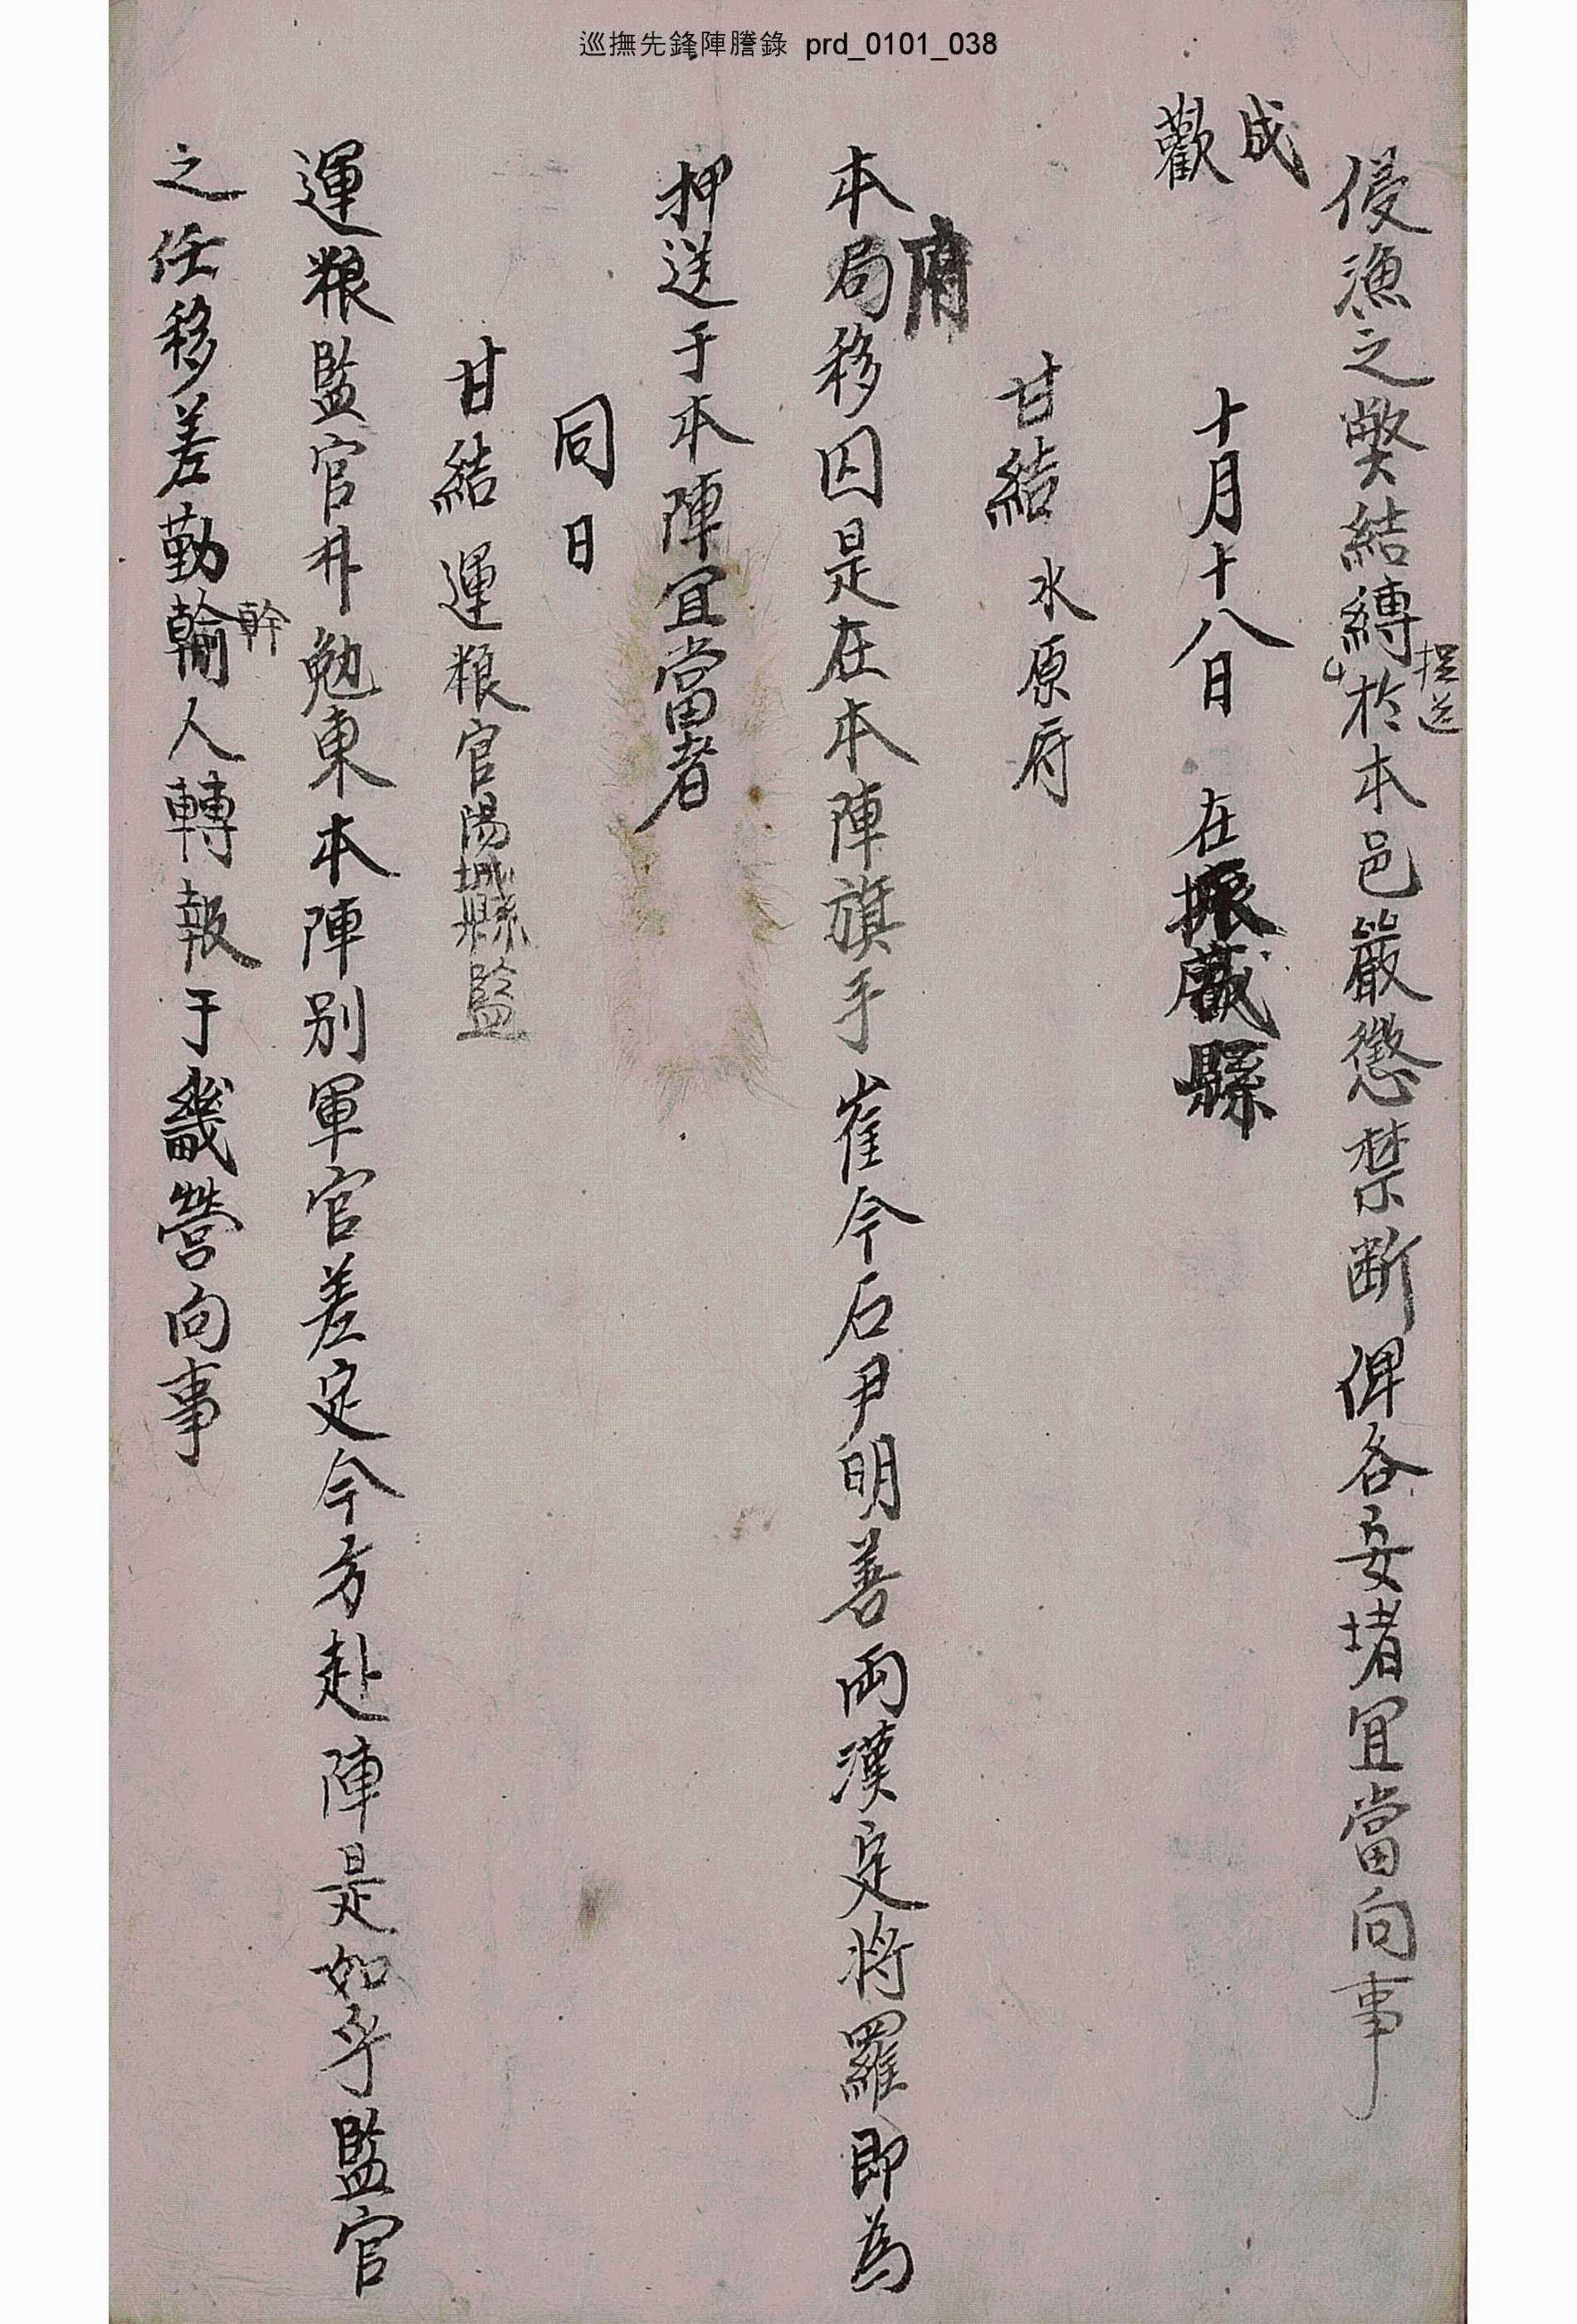 巡撫先鋒陣謄錄 prd_0101_038
侵漁之弊結縛於本邑嚴懲禁断俾各安堵宜當向事
捉送
成歡
十月十八日 在振威縣
甘結 水原府
府
本局移囚是在本陣旗手崔今石尹明善両漢定將羅即為
押送于本陣宜當者
同日
甘結 運粮官陽城縣監
運粮監官幷勉東本陣別軍官差定今方赴陣是如乎監官
之任移差勤輸人轉報于畿營向事
幹